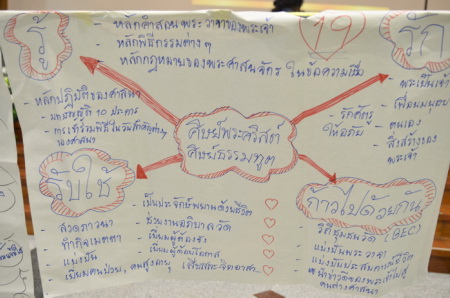 รู้
- หลักคำสอนพระวาจาของพระเจ้า
- หลักพิธีกรรมต่างๆ
- หลักกฎหมายของพระศาสนจักร ในข้อความเชื่อ
- หลักปฏิบัติของศาสนา
- บทบัญญัติ 10 ประการ
- การเข้าร่วมพิธีในวันสำคัญต่างๆ
ของศาสนา
19
รัก
- พระเป็นเจ้า
- เพื่อนมนุษย์
- ตนเอง
- สิ่งสร้างของ
พระเจ้า
- รักศัตรู
ให้อภัย
ศิษย์พระคริสต์
ศิษย์ธรรมทูต
รับใช้
- สวดภาวนา
- ทำกิจเมตตา
- แบ่งปัน
- เยี่ยมคนป่วย, คนสูงอายุ
- เป็นประจักษ์พยานด้วยชีวิต
- ช่วยงานอภิบาลวัด
- เยี่ยมผู้ต้องขัง
- เยี่ยมผู้ด้อยโอกาส
ก้าวไปด้วยกัน
- วิถีชุมชนวัด (BEC)
- แบ่งปันพระวาจา
- แบ่งปันประสบการณ์ชีวิต
- นำข่าวดีของพระเจ้าไปสู่
คนต่างศาสนา